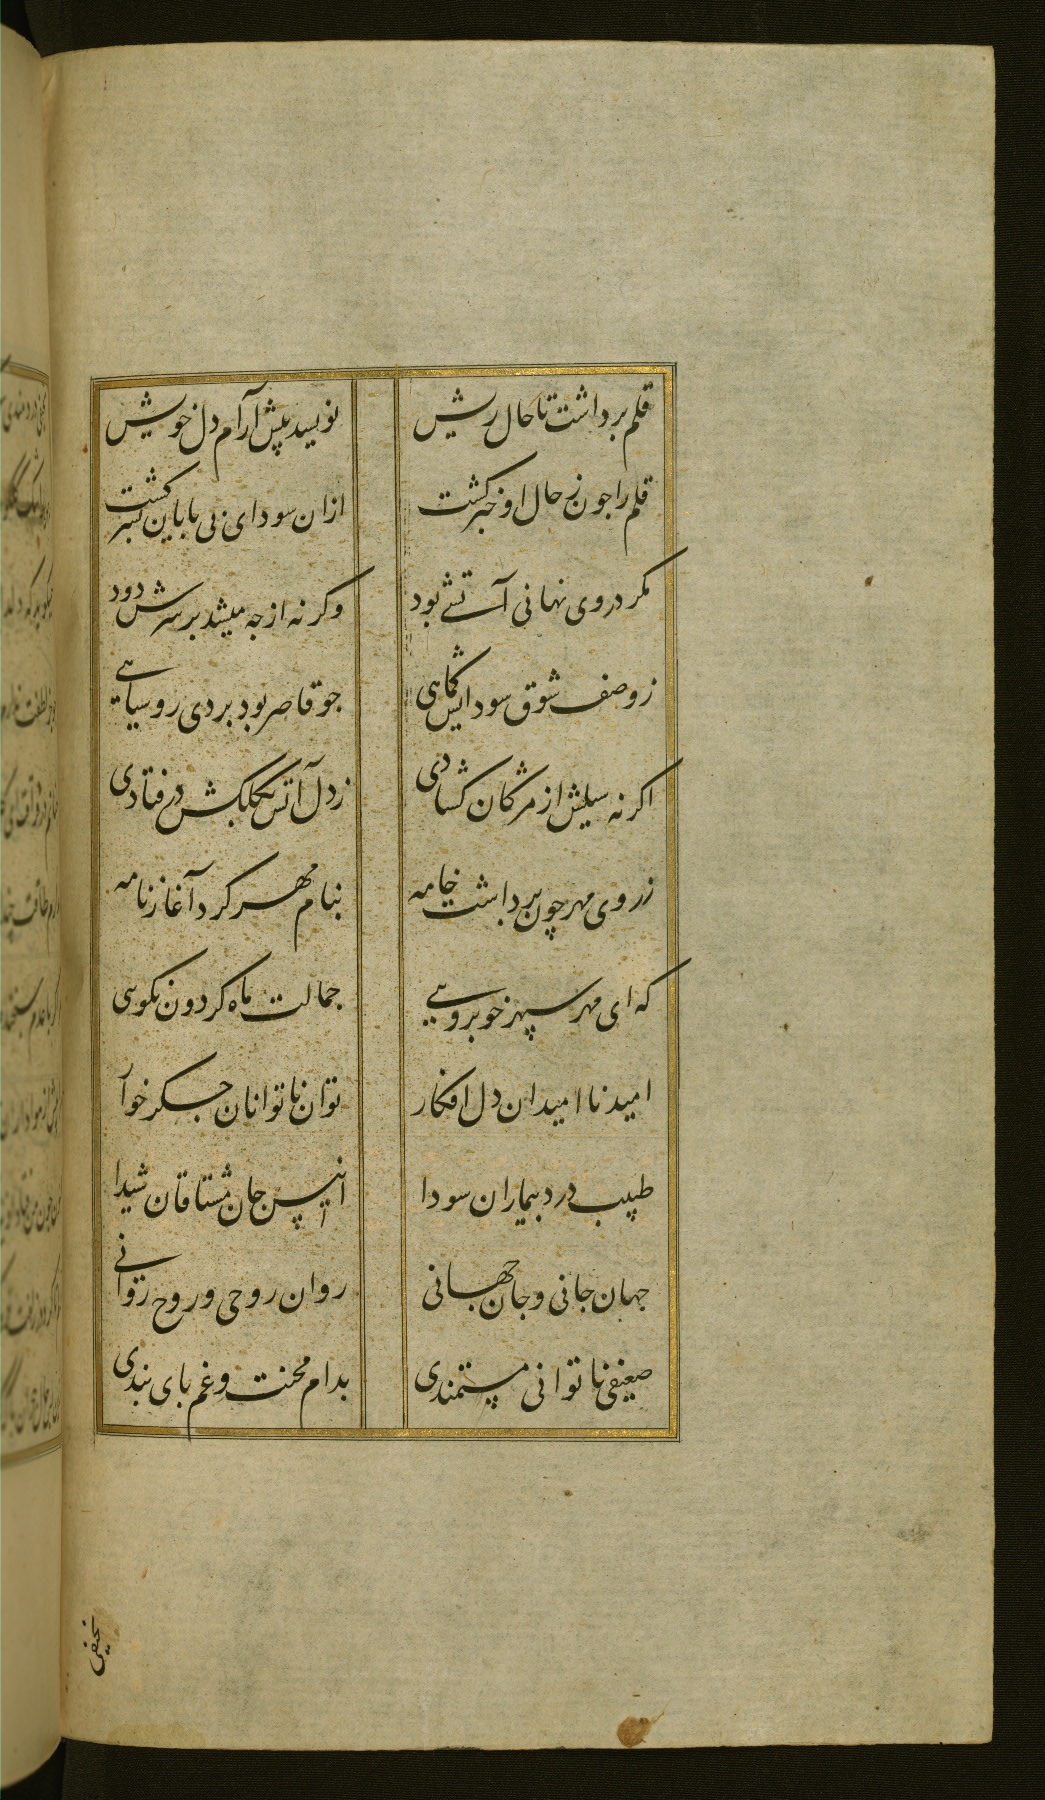 قلم برداشت تا حال ریش نویسد پیش آرام دل خویش
قلم را جون ز حال او خبر کشت ازان سودای بی بابان بسر کشت
مکر در وی نهانی آتشی بود وکرنه از جه میشد بر سرش دود
ز وصف شوق سودایش کماهی جو قاصر بود بردی روسیاهی
اکر نه سیلش از مژکان کشادی ز دل آتش بکلکش در فتادی
ز روی مهر چون برداشت خامه بنام مهر کرد آغاز نامه
که ای مهر سپهر خوبرویی جمالت ماه کردون نکویی
امید نا امیدان دل افکار توان ناتوانان جکر خوار
طبیب درد بیماران سودا انیس جان مشتاقان شیدا
جهان جانی و جان جهانی روان روحی و روح روانی
ضعیفی ناتوانی مستمندی بدام محنت و غم بای بندی
نحیفی